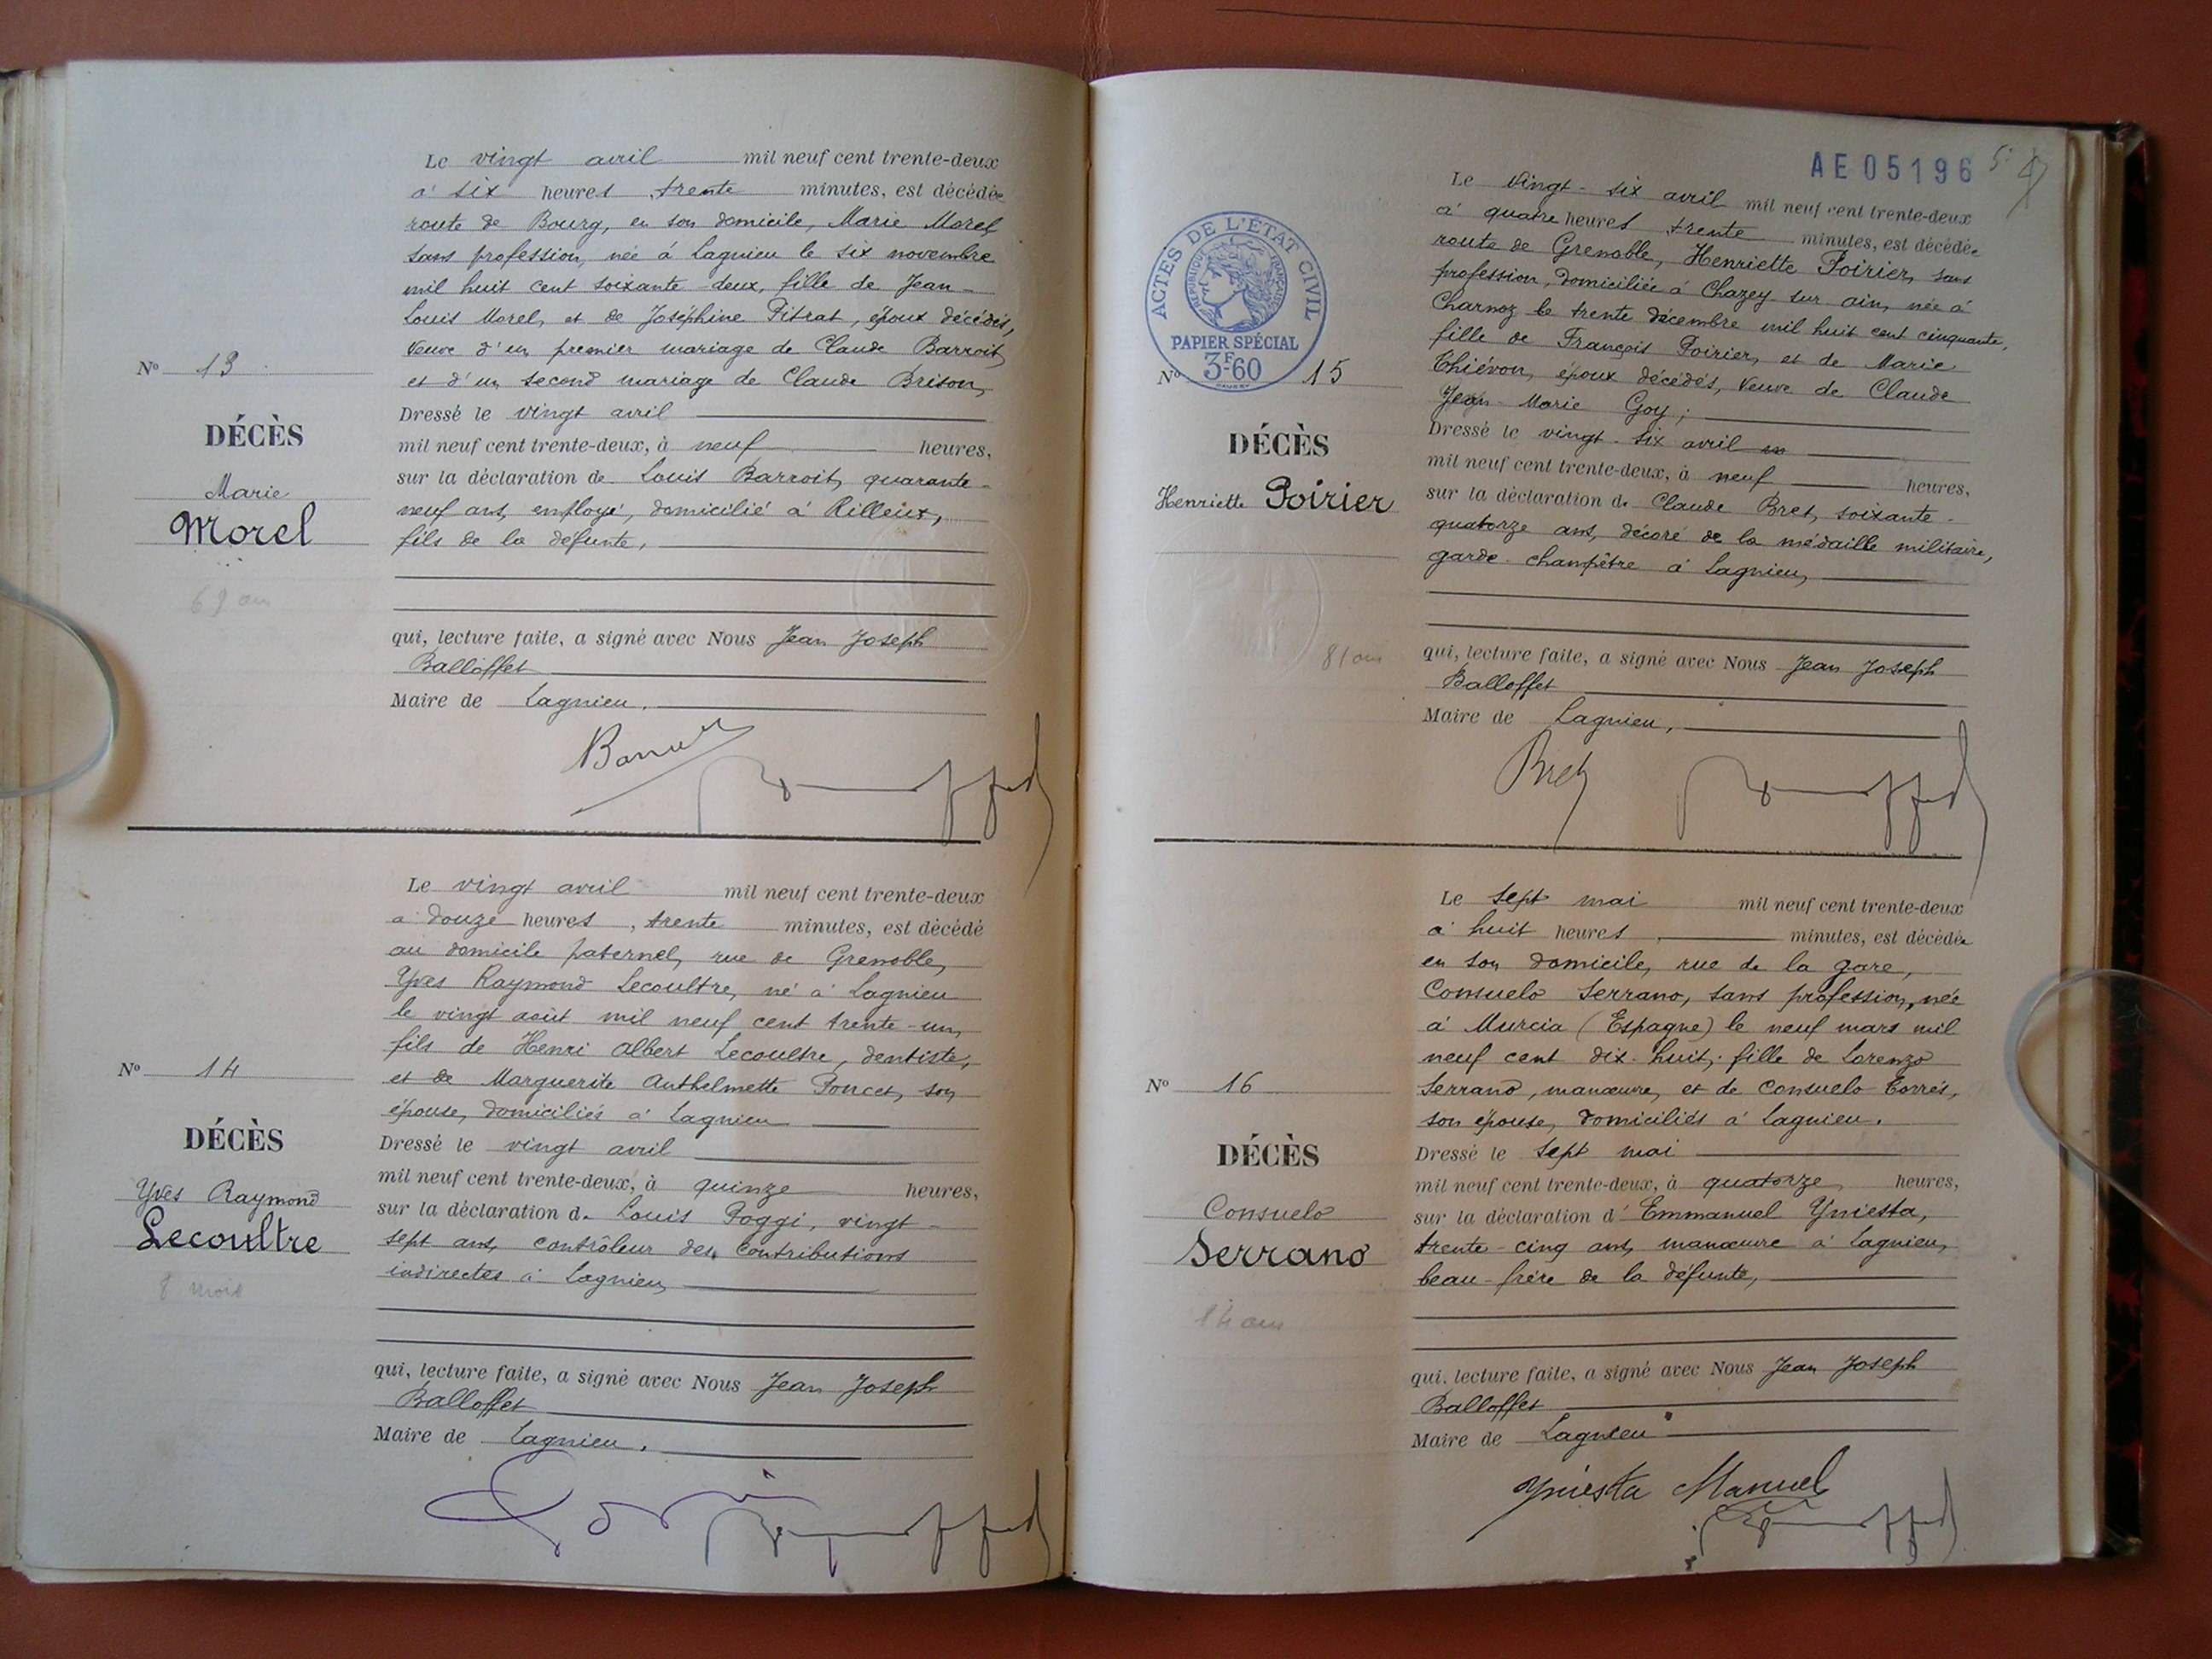 Le vingt avril mil neuf cent trente-deux
à six heures trente minutes, est décédée
route de Bourg, en son domicile, Marie Morel
sans profession, née à Lagnieu le six novembre
mil huit cent soixante-deux, fille de Jean-
Louis Morel, et de Joséphine Pitrat, époux décédés,
Veuve d'un premier mariage de Claude Barroit,
et d'un second mariage de Claude Brison,
Nº 13
DÉCÈS
Marie
Morel
69 ans
Dressé le vingt avril
mil neuf cent trente-deux, à neuf heures,
sur la déclaration de Louis Barroit, quarante-
neuf ans, employé, domicilié à Rillieux,
fils de la défunte,
qui, lecture faite, a signé avec Nous Jean Joseph
Balloffet
Maire de Lagnieu.
Le vingt avril mil neuf cent trente-deux
à douze heures, trente minutes, est décédé
au domicile paternel, rue de Grenoble,
Yves Raymond Lecoultre, né à Lagnieu
le vingt août mil neuf cent trente-un,
fils de Henri Albert Lecoultre, dentiste,
et de Marguerite Anthelmette Poncet, son
épouse, domiciliés à Lagnieu
Nº 14
DÉCÈS
Yves Raymond
Lecoultre
8 mois
Dressé le vingt avril
mil neuf cent trente-deux, à quinze heures,
sur la déclaration de Louis Poggi, vingt-
sept ans, contrôleur des contributions
indirectes à Lagnieu,
qui, lecture faite, a signé avec Nous Jean Joseph
Balloffet
Maire de Lagnieu.
AE05196
ACTES DE L'ÉTAT CIVIL
RÉPUBLIQUE FRANÇAISE
PAPIER SPÉCIAL
3F60
Le vingt-six avril mil neuf cent trente-deux
à quatre heures trente minutes, est décédée
route de Grenoble, Henriette Poirier, sans
profession, domiciliée à Chazey sur ain, née à
Charnoz le trente décembre mil huit cent cinquante,
fille de François Poirier, et de Marie
Thiévon, époux décédés, Veuve de Claude
Jean-Marie Goy;
Nº 15
DÉCÈS
Henriette Poirier
81 ans
Dressé le vingt-six avril
mil neuf cent trente-deux, à neuf heures,
sur la déclaration de Claude Bret, soixante-
quatorze ans, décoré de la médaille militaire,
garde-champêtre à Lagnieu,
qui, lecture faite, a signé avec Nous Jean Joseph
Balloffet
Maire de Lagnieu,
Bret
Le sept mai mil neuf cent trente-deux
à huit heures minutes, est décédée
en son domicile, rue de la gare,
Consuelo Serrano, sans profession, née
à Murcia (Espagne) le neuf mars mil
neuf cent dix-huit, fille de Lorenzo
Serrano, manœuvre, et de Consuelo Torrés,
son épouse, domiciliés à Lagnieu.
Nº 16
DÉCÈS
Consuelo
Serrano
14 ans
Dressé le sept mai
mil neuf cent trente-deux, à quatorze heures,
sur la déclaration d'Emmanuel Yniesta,
trente-cinq ans, manœuvre à Lagnieu,
beau-frère de la défunte,
qui, lecture faite, a signé avec Nous Jean Joseph
Balloffet
Maire de Lagnieu
Yniesta Manuel